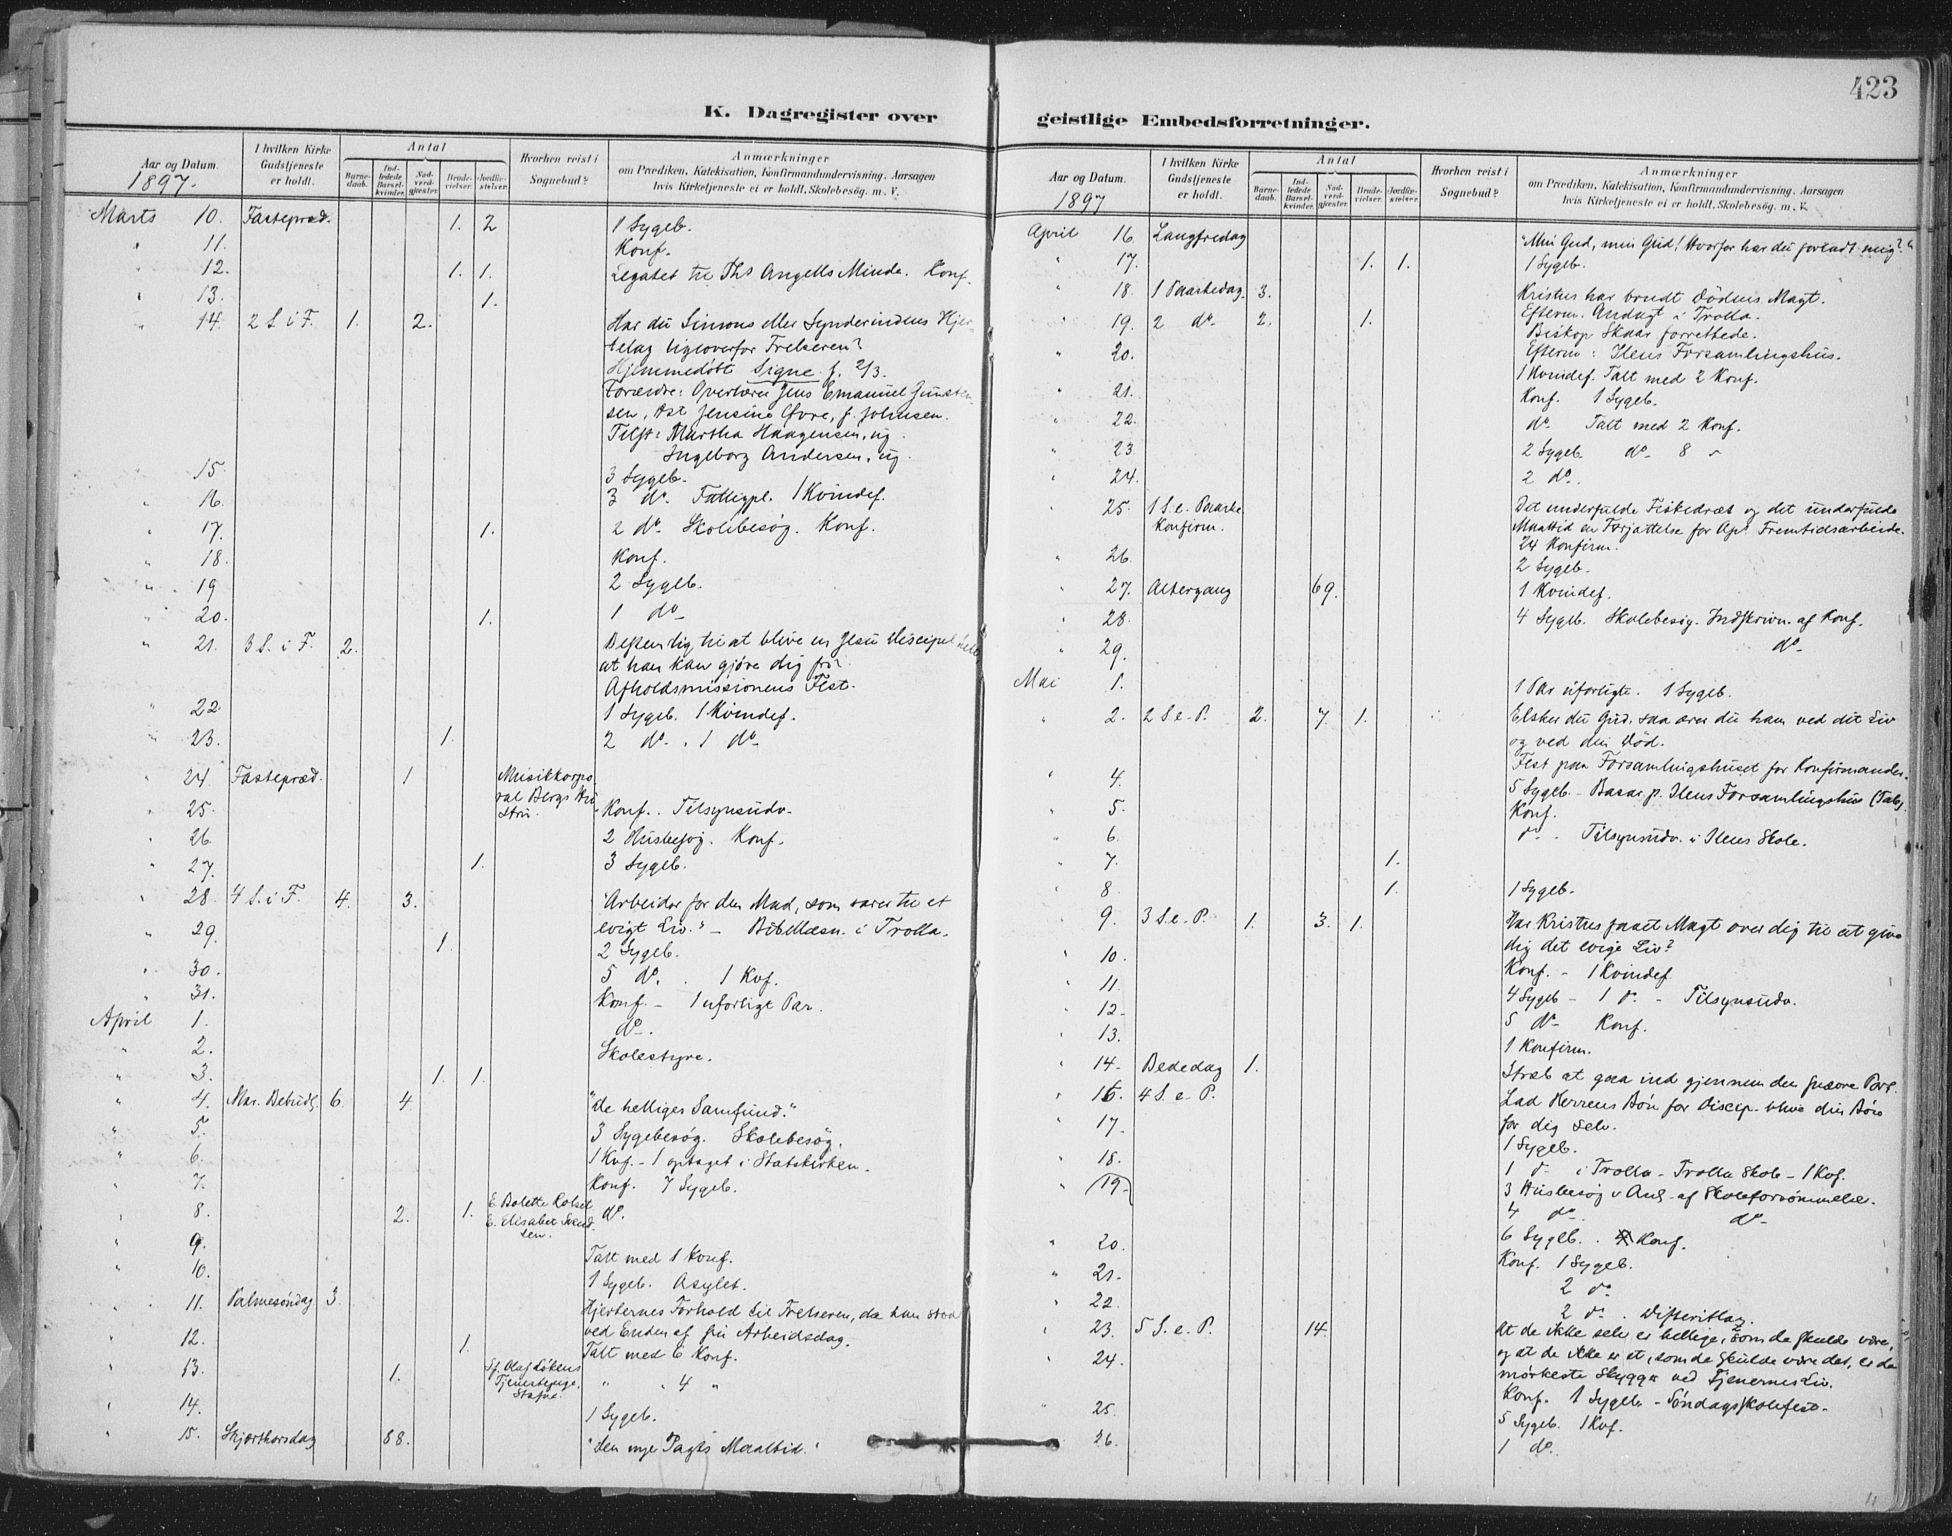 423
K. Dagregister over geistlige Embedsforretninger.
Aar og Datum.
1897.
I hvilken Kirke Gudstjeneste er holdt.
Antal
Barne-daab.
Ind-ledede Barsel-kvinder.
Nad-verd-gjester.
Brude-vielser.
Jordfæ-stelser.
Hvorhen reist i Sognebud?
Anmærkninger
om Prædiken, Katekisation, Konfirmandundervisning, Aarsagen
hvis Kirketjeneste ei er holdt, Skolebesög. m. V.
Marts 10. Fastepræd. 1. 2 1 Sygeb.
" 11. Konf.
" 12. 1. 1. Legatet til Ths Angells Minde. Konf.
" 13. 1.
" 14. 2 S. i F. 1. 2. Har du Simons eller Synderindens Hjer-
telag ligeoverfor Frelseren?
Hjemmedøbt Signe f. 2/3.
Forældre: Overlærer Jens Emanuel
sen, Ast Jensine Øvre, f. Johnsen.
Tilst: Martha Haagensen, ug.
Ingeborg Andersen, ug.
" 15. 3 Sygeb.
" 16. 3 do. Fattigpl. 1 Kvindef.
" 17. 1. 2 do. Skolebesøg. Konf.
" 18. Konf.
" 19 2 Sygeb.
" 20. 1. 1 do
" 21. 3 S. i F. 2. dig til at blive en Jesu Discipel
at han kan gjøre dig fri?
Afholdsmissionens Fest.
" 22. 1 Sygeb. 1 Kvindef.
" 23. 1. 2 do. 1 do
" 24. Fastepræd. 1 Musikkorpo-
ral Bergs Hu-
stru.
" 25. Konf. Tilsynsudv.
" 26. 2 Husbesøg. Konf.
" 27. 1. 3 Sygeb.
" 28. 4 S. i F. 4. 3. "Arbeider for den Mad, som varer til et
evigt Liv." - Bibellæsn. i Trolla.
" 29. 1. 2 Sygeb.
" 30. 5 do. 1 Kvf.
" 31. Konf. - 1 uforligt Par.
April 1. do.
" 2. Skolestyre.
" 3. 1. 1.
" 4. Mar. Bebud. 6. 4. "De helliges Samfund."
" 5. 3 Sygebesøg. Skolebesøg.
" 6. 1 Kvf. - 1 optaget i Statskirken.
" 7. Konf. 7 Sygeb.
" 8. 2. 1. E. Bolette
E. Elisabet Svend-
sen. do.
" 9. Talt med 1 Konf.
" 10. 1 Sygeb. Asylet.
" 11. Palmesøndag 3. Hjerternes Forhold til Frelseren, da han stod
ved Enden af sin Arbeidsdag.
" 12. 1. Talt med 6 Konf.
" 13. 1. Olaf Løkens
Tjenestepige,
Stavne. " " 4 "
" 14. 1 Sygeb.
" 15. Skjærthorsdag 88. "Den nye Pagts Maaltid."
Aar og Datum.
1897
I hvilken Kirke Gudstjeneste er holdt.
Antal
Barne-daab.
Ind-ledede Barsel-kvinder.
Nad-verd-gjester.
Brude-vielser.
Jordfæ-stelser.
Hvorhen reist i Sognebud?
Anmærkninger
om Prædiken, Katekisation, Konfirmandundervisning, Aarsagen
hvis Kirketjeneste ei er holdt, Skolebesög. m. V.
April 16. Langfredag "Min Gud, min Gud! Hvorfor har du forladt mig?"
" 17. 1. 1. 1 Sygeb.
" 18. 1 Paaskedag. 3. Kristus har brudt Dødens Magt.
Efterm. Andagt i Trolla.
" 19. 2 do. 2. 1. Biskop Skaar forrettede.
Efterm: Ilens Forsamlingshus.
" 20. 1 Kvindef. Talt med 2 Konf.
" 21. Konf. 1 Sygeb.
" 22. do. Talt med 2 Konf.
" 23. 2 Sygeb. do. 8 "
" 24. 2 do.
" 25. 1 S. e. Paaske
Konfirm. Det underfulde Fiskedræt og det underfulde
Maaltid en Forjættelse for Ap. Fremtidsarbeide.
24 Konfirm.
" 26. 2 Sygeb.
" 27. Altergang 69. 1 Kvindef.
" 28. 4 Sygeb. Skolebesøg. Indskrivn. af Konf.
" 29. do.
Mai 1. 1 Par uforligte. 1 Sygeb.
" 2. 2 S. e. P. 2. 7. 1. Elsker du Gud, saa ærer du ham ved dit Liv
og ved din Død.
Fest paa Forsamlingshuset for Konfirmander.
" 4. 5 Sygeb. - Basar p. Ilens Forsamlingshus
" 5. Konf.
" 6. do. Tilsynsudv. i Ilens Skole.
" 7. 1.
" 8 1. 1 Sygeb.
" 9. 3 S. e. P. 1. 3. 1. Har Kristus faaet Magt over dig til at give
dig det evige Liv?
" 10. Konf. - 1 Kvindef.
" 11. 4 Sygeb - 1 do. - Tilsynsudv.
" 12. 5 do. Konf.
" 13. 1 Konfirm.
" 14. Bededag 1. Stræb at gaa ind gjennem den snævre Port.
" 16. 4 S. e. P. Lad Herrens Bøn for Discip. blive din Bøn
for dig selv.
" 17. 1 Sygeb.
" 18. 1 do. i Trolla - Trolla Skole - 1 Kvf.
" 19. 3 Husbesøg v Anl. af Skoleforsømmelse.
4 do. do.
" 20. 6 Sygeb. Konf.
" 21. Konf. 1 Sygeb.
2 do
" 22. 2 do.
" 23. 5 S. e. P. 14. At de ikke selv er hellige, som de skulde være,
og at de ikke er et, som de skulde være det, er de
mørkeste Skygger ved Tjenernes Liv.
" 24. Konf. 1 Sygeb. - Søndagsskolefest.
" 25. 5 Sygeb. 1 Kvf.
" 26. 1 do.